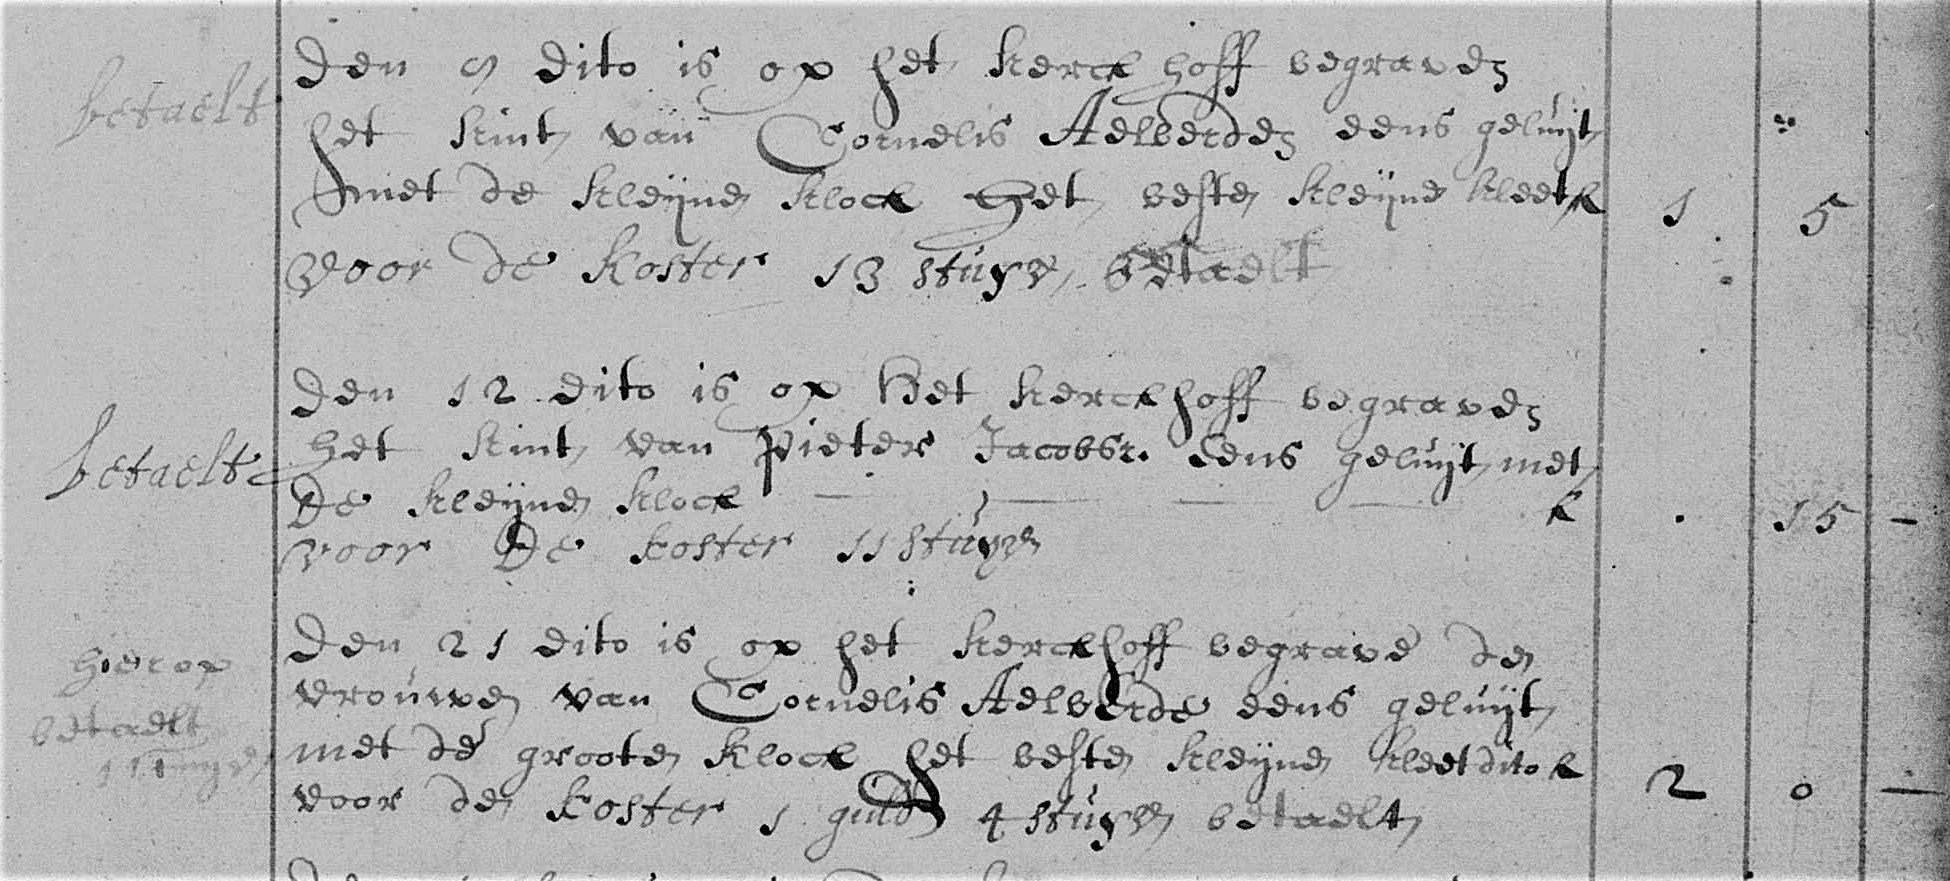 betaelt
Den 9 dito is op het kerck hoff begraven
het kint van Cornelis Aelberden eens geluijt
met de kleijne klock Het beste kleijne kleet
1 5
voor de koster 13 stuyv betaelt
betaelt
Den 12 dito is op Het kerckhoff begraven
het kint van Pieter Jacobsz. Eens geluijt met
De kleijne klock
. 15 —
voor De koster 11 stuyv
hierop
betaelt
Den 21 dito is op het kerckhoff begrave de
vrouwe van Cornelis Aelberde eens geluijt
met de groote klock het beste kleijne kleet dito
2 0 —
voor de koster 1 guld 4 stuyv betaelt